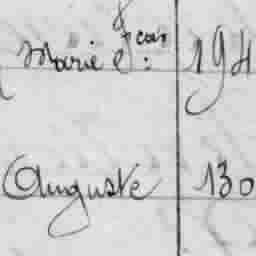 Marie J Jean : 194
Auguste 130